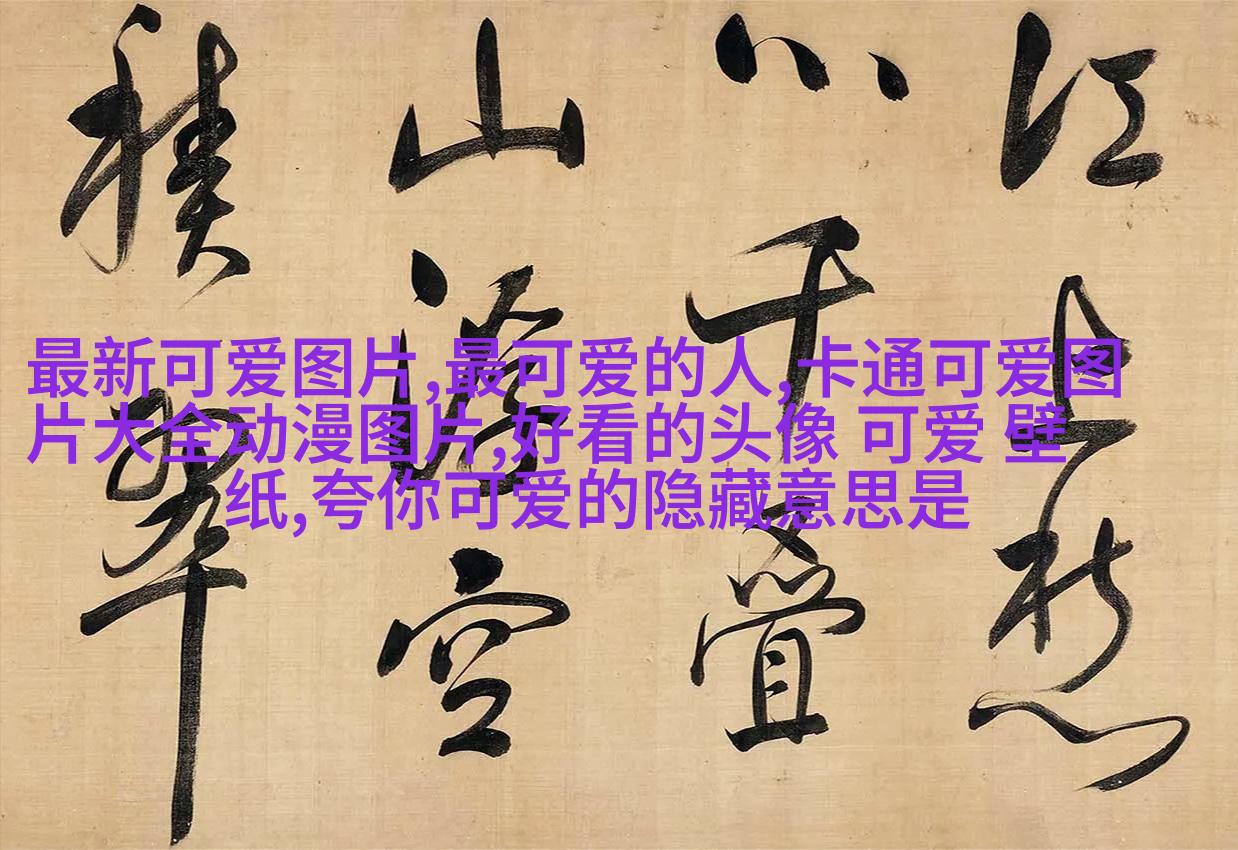 江上愁
心千疊
山浮空
積翠
最新可爱图片,最可爱的人,卡通可爱图
片大全动漫图片,好看的头像 可爱 壁
纸,夸你可爱的隐藏意思是